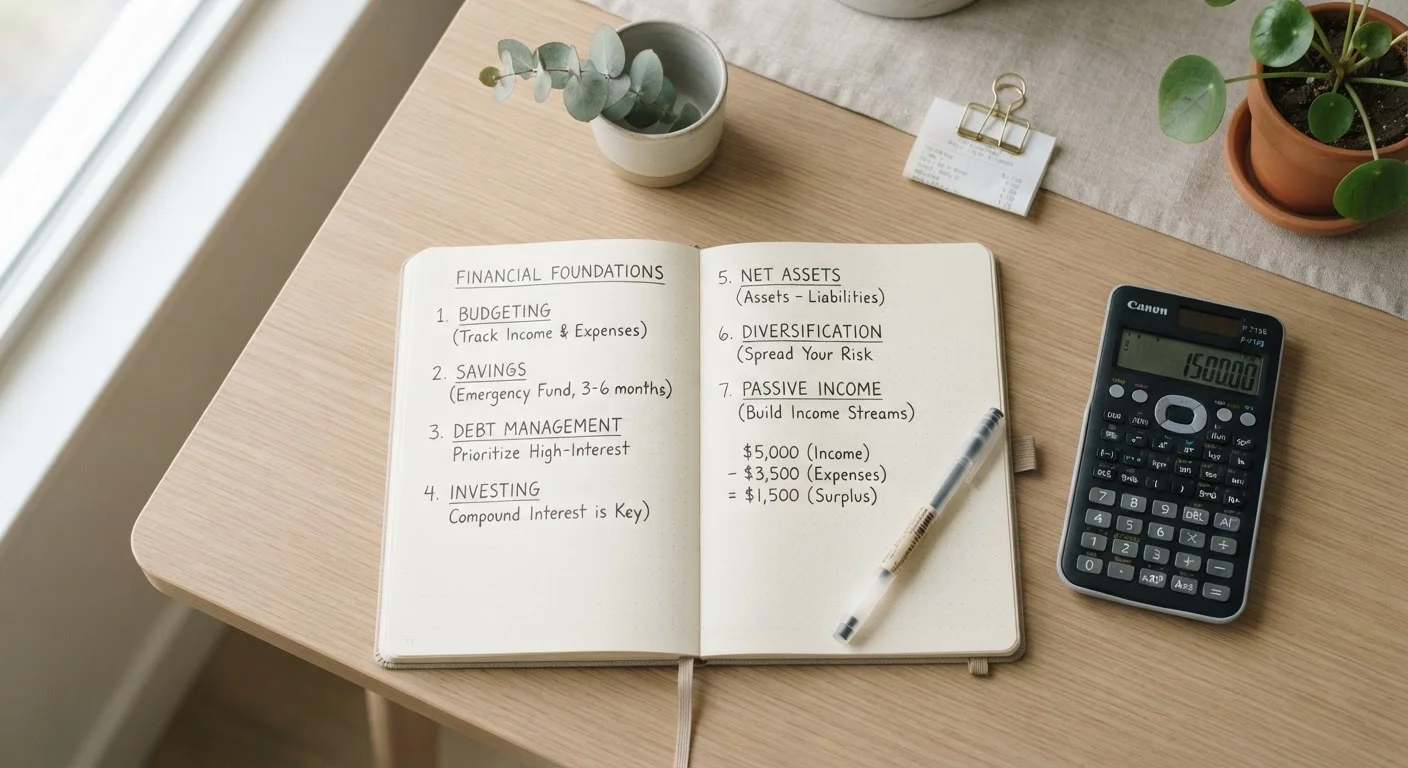 FINANCIAL FOUNDATIONS
1. BUDGETING
(Track Income & Expenses)
2. SAVINGS
(Emergency Fund, 3-6 months)
3. DEBT MANAGEMENT
Prioritize High-Interest
4. INVESTING
Compound Interest is Key)
5. NET ASSETS
(Assets - Liabilities)
6. DIVERSIFICATION
(Spread Your Risk
7. PASSIVE INCOME
(Build Income Streams)
$5,000 (Income)
- $3,500 (Expenses)
= $1,500 (Surplus)
Canon
1500.00
7 8 9 DEL
4 5 6 × ÷
1 2 3 + -
0 . =